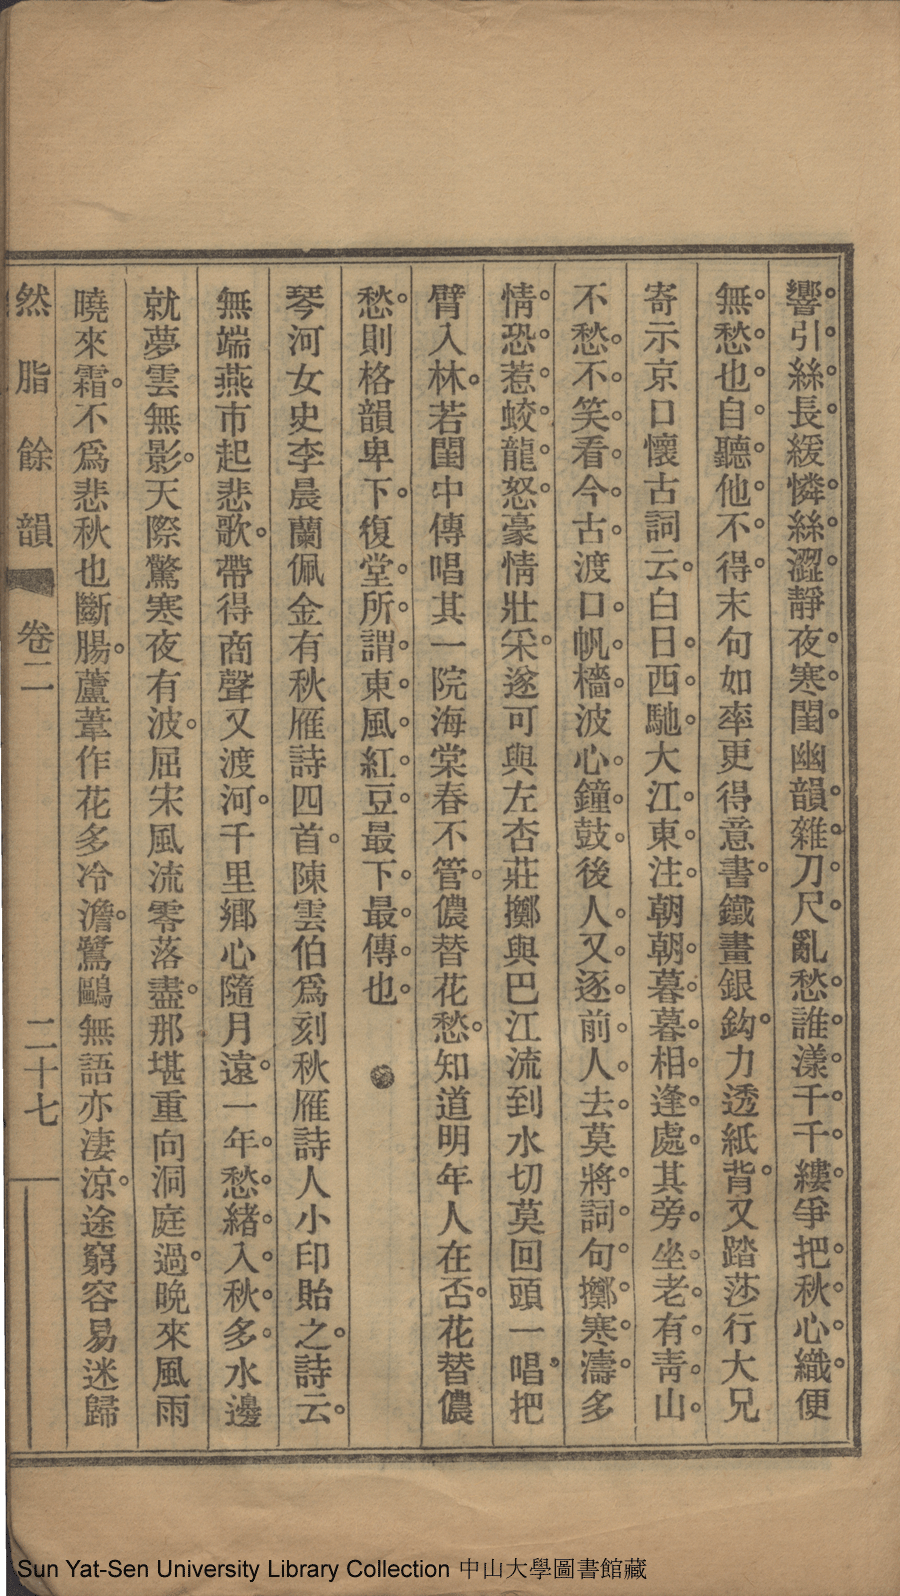 響引絲長緩憐絲澀靜夜寒閨幽韻雜刀尺亂愁誰漾千千縷爭把秋心織便
無愁也自聽他不得末句如率更得意書鐵畫銀鈎力透紙背又踏莎行大兄
寄示京口懷古詞云白日西馳大江東注朝朝暮暮相逢處其旁坐老有靑山
不愁不笑看今古渡口帆檣波心鐘鼓後人又逐前人去莫將詞句擲寒濤多
情恐惹蛟龍怒豪情壯采遂可與左杏莊擲與巴江流到水切莫回頭一唱把
臂入林若閨中傳唱其一院海棠春不管儂替花愁知道明年人在否花替儂
愁則格韻卑下復堂所謂東風紅豆最下最傳也
琴河女史李晨蘭佩金有秋雁詩四首陳雲伯爲刻秋雁詩人小印貽之詩云
無端燕市起悲歌帶得商聲又渡河千里鄉心隨月遠一年愁緒入秋多水邊
就夢雲無影天際驚寒夜有波屈宋風流零落盡那堪重向洞庭過晚來風雨
曉來霜不爲悲秋也斷腸蘆葦作花多冷澹鷺鷗無語亦淒涼途窮容易迷歸
然脂餘韻 卷二 二十七
Sun Yat-Sen University Library Collection 中山大學圖書館藏